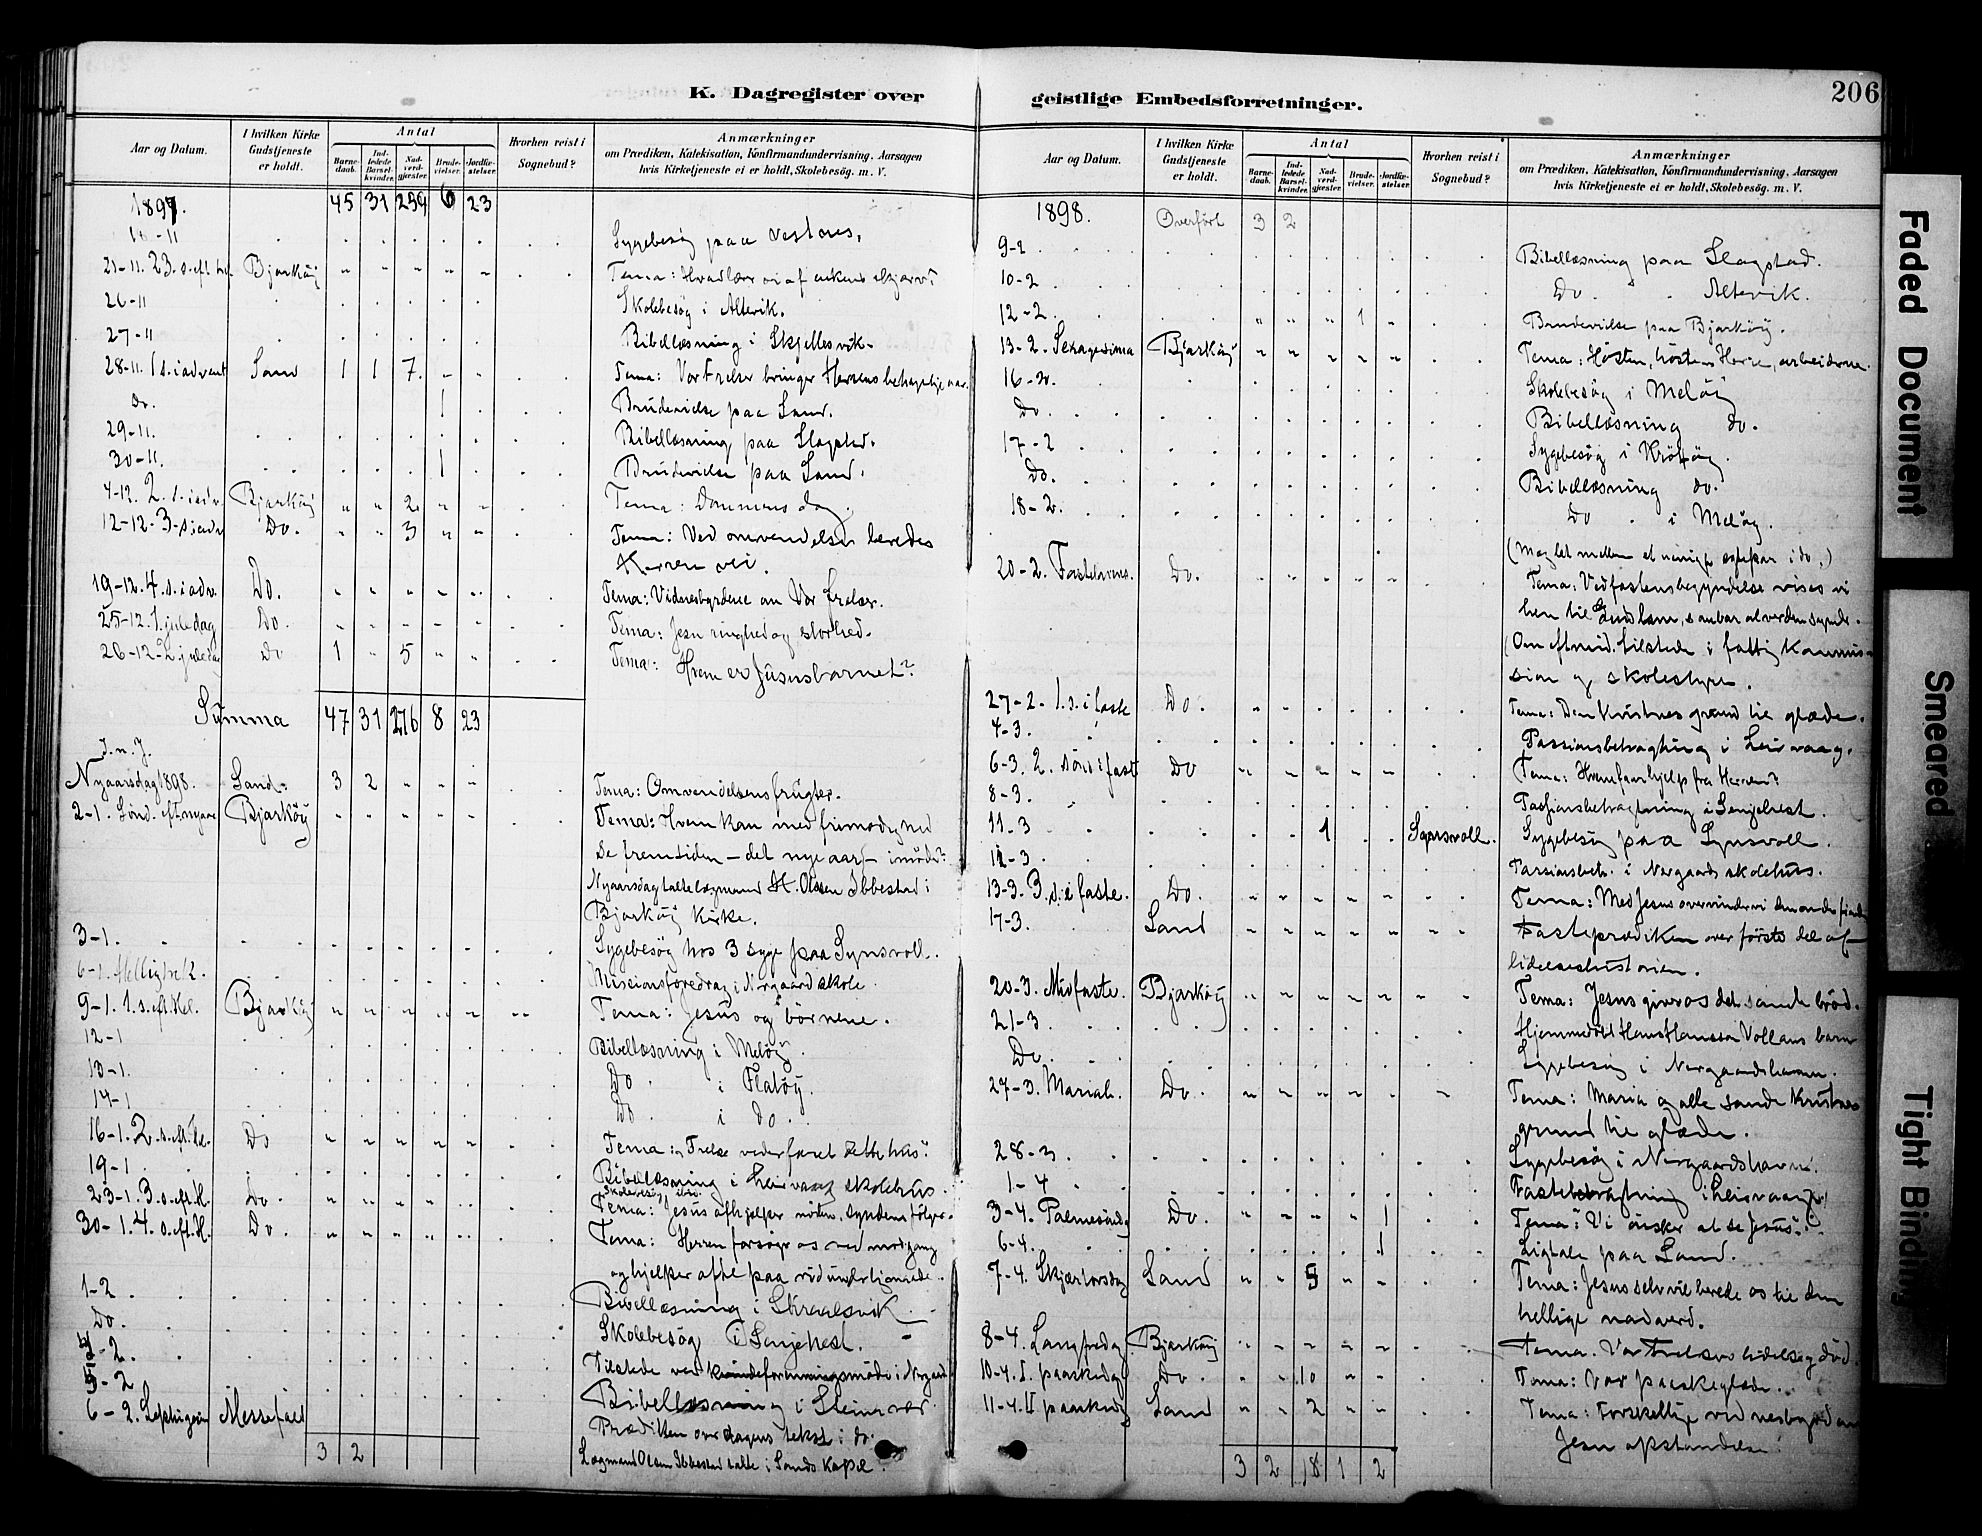 K. Dagregister over
Aar og Datum.
I hvilken Kirke Gudstjeneste er holdt.
Antal
Barnedaab.
Indledede Barselkvinder.
Nadverdgjester.
Brudevielser.
Jordfæstelser.
Hvorhen reist i Sognebud?
Anmærkninger
om Prædiken, Katekisation, Konfirmandundervisning, Aarsagen
hvis Kirketjeneste ei er holdt, Skolebesög m. V.
1897. 45 31 259 6 23
18-11 Sygebesög paa
21-11. 23. s. eft. tr. Bjarköy Tema:
26-11 Skolebesög i Altevik.
27-11 Bibellæsning i Skjellesvik.
28-11. 1 s. i advent Sand 1 1 7 Tema: Vor Frelser bringer Herrens behagelige aar.
Do. 1 Brudevielse paa Sand.
29-11. Bibellæsning paa Slagstad.
30-11. 1 Brudevielse paa Sand.
4-12. 2. s. i adv. Bjarköy 2 Tema: Dommens dag.
12-12. 3. s. i adv Do. 3 Tema: Ved omvendelse beredes
Herren vei.
19-12. 4. s. i adv. Do. Tema: Vidnesbyrdene om Vor frelser.
25-12. 1. juledag Do. Tema: Jesu ringhed og storhed.
26-12. 2. juledag Do 1 5 Tema: Hvem er Jesusbarnet?
Summa 47 31 276 8 23
I. n. J.
Nyaarsdag 1898. Sand. 3 2 Tema: Omvendelsens frugter.
2-1. Sönd. eft. nyaar Bjarköy Tema: Hvem kan med frimodighed
se fremtiden – det nye aar – imöde?
Nyaarsdag talte lægmand H. Olsen Ibbestad i
Bjarköy Kirke.
3-1. Sygebesög hos 3 syge paa Synsvoll.
6-1. Helligtrek. Missionsforedrag i Nergaard skole.
9-1. 1. s. eft. Hel. Bjarköy Tema: Jesus og börnene.
12-1 Bibellæsning i Melöy.
13-1. Do. i Flatöy.
14-1 Do. i do.
16-1. 2. s. eft. Hel. Do Tema: Frelse vederfaret dette hus.
19-1 Bibellæsning i Leirvaag skolehus.
Skolebesög
23-1. 3. s. eft. H. Do. Tema: Jesus afhjelper nöden, syndens fölger.
30-1. 4. s. eft. H. Do. Tema: Herren forsöger os med modgang
og hjelper ofte paa vidunderlig maade.
1-2 Bibellæsning i Skraalsvik
Do. Skolebesög i Senjehest.
4-2. Tilstede ved kvindeforeningsmöde i Nergaard
5-2 Bibellæsning i Steinavær
6-2. Septuages. Messefald Prædiken over dagens tekst i do.
3 2 Lægmand Olsen Ibbestad talte i Sands Kapel.
geistlige Embedsforretninger.
206
Aar og Datum.
I hvilken Kirke Gudstjeneste er holdt.
Antal
Barnedaab.
Indledede Barselkvinder.
Nadverdgjester.
Brudevielser.
Jordfæstelser.
Hvorhen reist i Sognebud?
Anmærkninger
om Prædiken, Katekisation, Konfirmandundervisning, Aarsagen
hvis Kirketjeneste ei er holdt, Skolebesög m. V.
1898. Overfört 3 2
9-2 Bibellæsning paa Slagstad.
10-2 Do. Altevik.
12-2. 1 Brudevielse paa Bjarköy.
13-2. Sexagesima Bjarköy Tema: Hösten, höstens Herre, arbeiderne.
16-2. Skolebesög i Melöy
Do. Bibellæsning do.
17-2 Sygebesög i Kröttöy.
Do. Bibellæsning do.
18-2. Do i Melöy.
(Mæglet mellem et uenigt egtepar i do.)
20-2. Fastelavns. Do. Tema: Ved fastens begyndelse vises vi
hen til Guds lam, som bar al verdens synd.
(Om efterm. tilstede i fattig kommis-
sion og skolestyre.
27-2. 1. s. i faste Do. Tema: Den kristnes grund til glæde.
4-3. Passionsbetragtning i Leirvaag.
6-3. 2. sönd i fast Do Tema: Hvem faar hjelp fra Herren?
8-3. Passionsbetragtning i Senjehest.
11-3 1 Synsvoll. Sygebesög paa Synsvoll.
11-3. Passionsbetr. i Nergaards skolehus.
13-3. 3. s. i faste. Do. Tema: Med Jesus overvinder vi den onde fiende
17-3. Sand Fasteprædiken over förste del af
lidelseshistorien.
20-3. Midfaste. Bjarköy Tema: Jesus giver os det sande bröd.
21-3. Hjemmedöbt Hans Hansson Vollans barn
Do. Sygebesög i Nergaardshavnen.
27-3. Mariab. Do. Tema: Maria og alle sande kristnes
grund til glæde.
28-3 Sygebesög i Nergaardshavn.
1-4 Fastebetragtning i Leirvaag.
3-4. Palmesöndg Do. 1 Tema: "Vi önsker at se Jesus".
6-4. 1 Ligtale paa Sand.
7-4. Skjærtorsdag Sand 5 Tema: Jesus selv vil berede os til den
hellige nadverd.
8-4. Langfredag Bjarköy Tema. Vor Frelsers lidelse og död.
10-4. I. paaskedag Do. 10 Tema: Vor paaskeglæde.
11-4. II paaskedg Sand 2 Tema: Forskellige vidnesbyrd om
Jesu opstandelse.
3 2 18 1 2
Faded Document
Smeared
Tight Binding